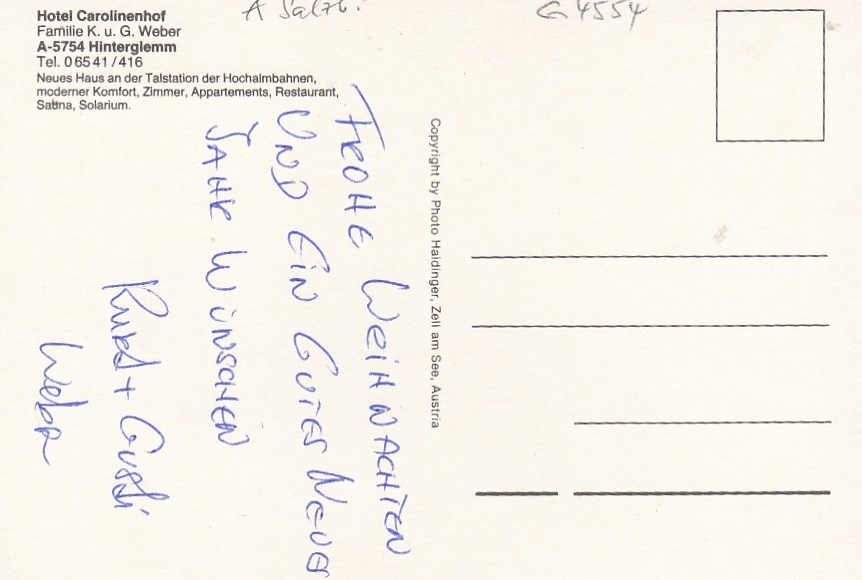 A Salzb.
G 4554
Hotel Carolinenhof
Familie K. u. G. Weber
A-5754 Hinterglemm
Tel. 0 65 41 / 416
Neues Haus an der Talstation der Hochalmbahnen,
moderner Komfort, Zimmer, Appartements, Restaurant,
Sauna, Solarium.
FROHE WEIHNACHTEN
UND EIN GUTES NEUES
JAHR WÜNSCHEN
Kurt + Gusti
Weber
Copyright by Photo Haidinger, Zell am See, Austria